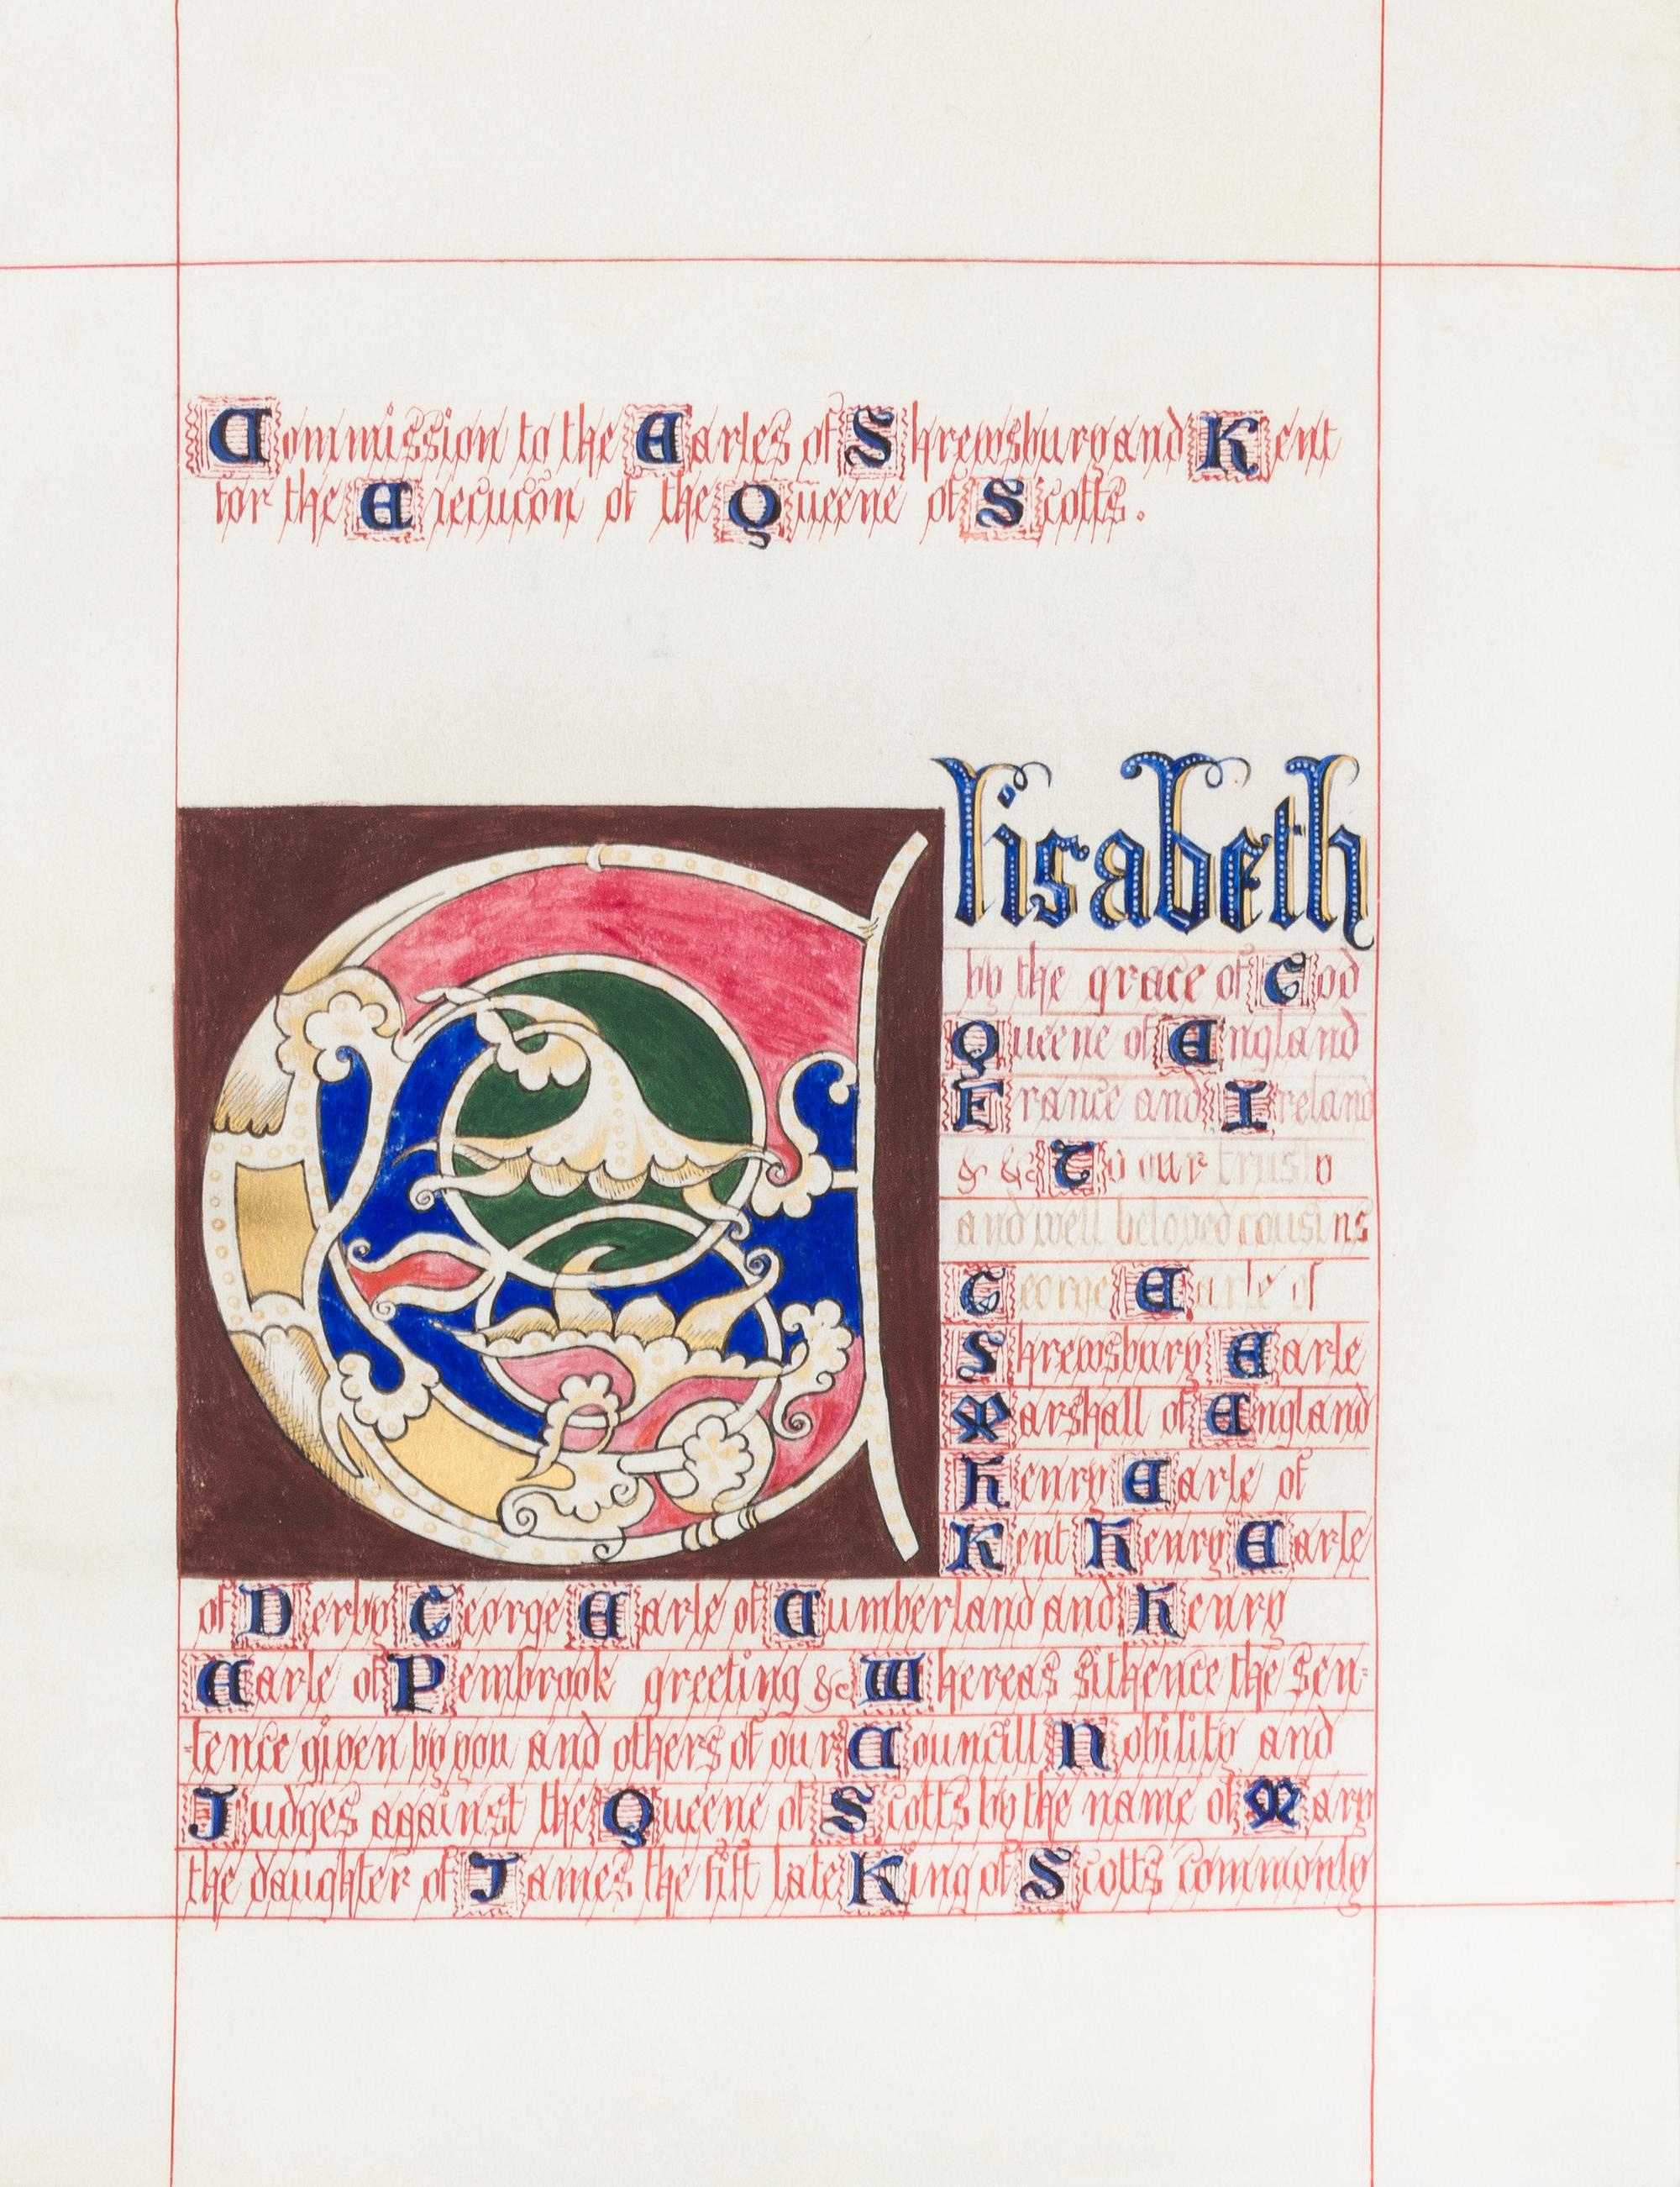 Commission to the Earles of Shrewsbury and Kent
for the Execucōn of the Queene of Scotts.
Elisabeth
by the grace of God
Queene of England
France and Ireland
& &c To our trusty
and well beloved cousins
George Earle of
Shrewsbury Earle
Marshall of England
Henry Earle of
Kent Henry Earle
of Derby George Earle of Cumberland and Henry
Earle of Pembrook greeting &c Whereas sithence the sen-
-tence given by you and others of our Councill Nobility and
Judges against the Queene of Scotts by the name of Mary
the daughter of James the fift late King of Scotts commonly